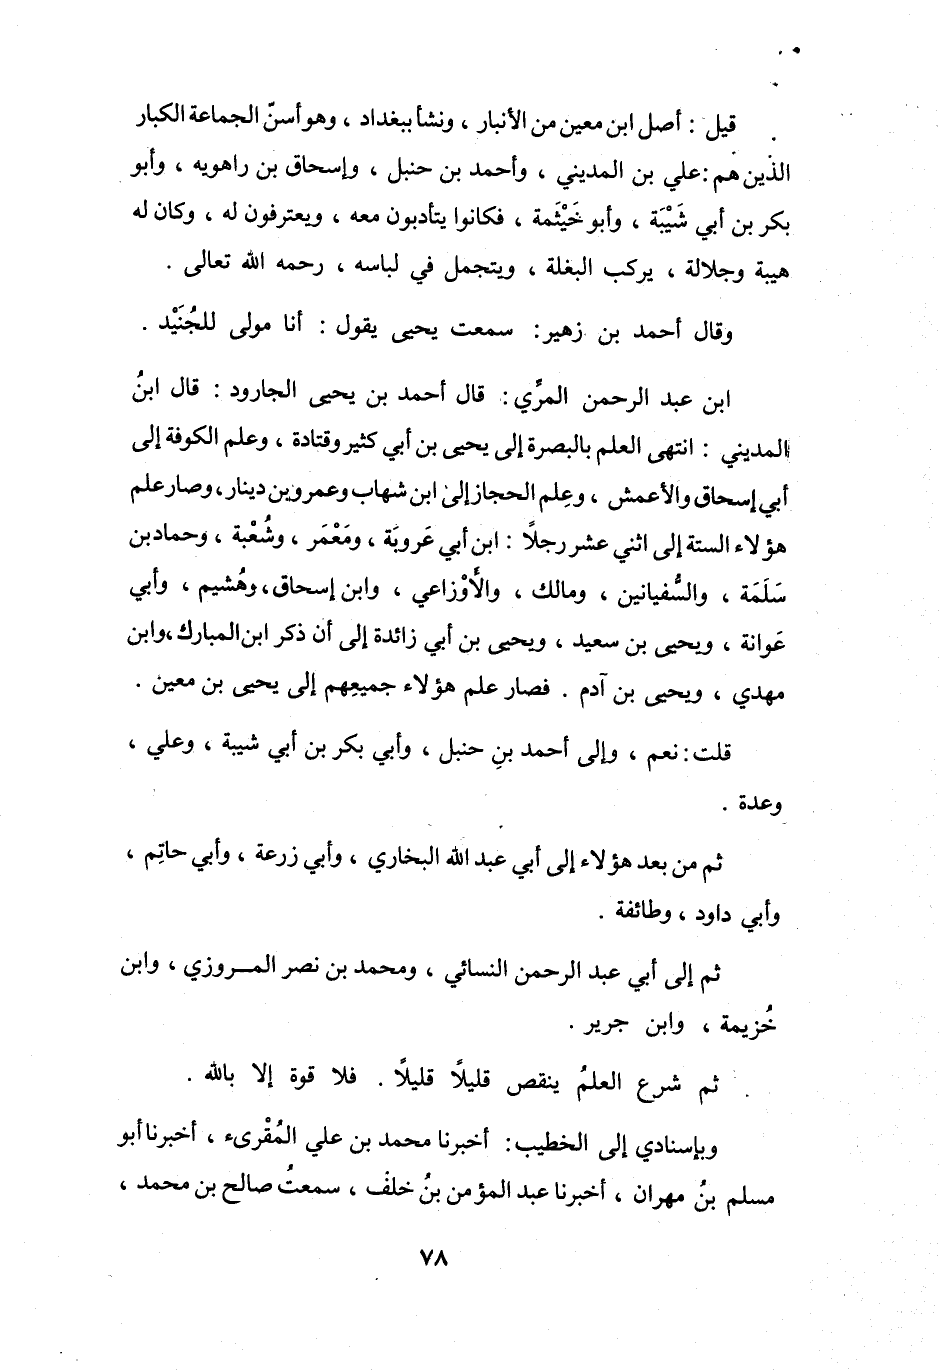 قيل : أصل ابن معين من الأنبار ، ونشأ ببغداد ، وهو أسنّ الجماعة الكبار
الذين هم : علي بن المديني ، وأحمد بن حنبل ، وإسحاق بن راهويه ، وأبو
بكر بن أبي شَيْبَة ، وأبو خَيْثَمة ، فكانوا يتأدبون معه ، ويعترفون له ، وكان له
هيبة وجلالة ، يركب البغلة ، ويتجمل في لباسه ، رحمه الله تعالى .
وقال أحمد بن زهير : سمعت يحيى يقول : أنا مولى للجُنَيْد .
ابن عبد الرحمن المرِّي : قال أحمد بن يحيى الجارود : قال ابنُ
المديني : انتهى العلم بالبصرة إلى يحيى بن أبي كثير وقتادة ، وعلم الكوفة إلى
أبي إسحاق والأعمش ، وعِلم الحجاز إلى ابن شهاب وعمرو بن دينار ، وصار علم
هؤلاء الستة إلى اثني عشر رجلاً : ابن أبي عَروبَة ، ومَعْمَر ، وشُعْبة ، وحماد بن
سَلَمَة ، والسُّفيانين ، ومالك ، والأَوْزاعي ، وابن إسحاق ، وهُشيم ، وأبي
عَوانة ، ويحيى بن سعيد ، ويحيى بن أبي زائدة إلى أن ذكر ابن المبارك ، وابن
مهدي ، ويحيى بن آدم . فصار علم هؤلاء جميعِهم إلى يحيى بن معين .
قلت : نعم ، وإلى أحمد بنِ حنبل ، وأبي بكر بن أبي شيبة ، وعلي ،
وعدة .
ثم من بعد هؤلاء إلى أبي عبد الله البخاري ، وأبي زرعة ، وأبي حاتِم ،
وأبي داود ، وطائفة .
ثم إلى أبي عبد الرحمن النسائي ، ومحمد بن نصر المـروزي ، وابن
خُزيمة ، وابن جرير .
ثم شرع العلمُ ينقص قليلًا قليلًا . فلا قوة إلا بالله .
وبإسنادي إلى الخطيب : أخبرنا محمد بن علي المُقْرىء ، أخبرنا أبو
مسلم بنُ مهران ، أخبرنا عبد المؤمن بنُ خلف ، سمعتُ صالح بن محمد ،
٧٨